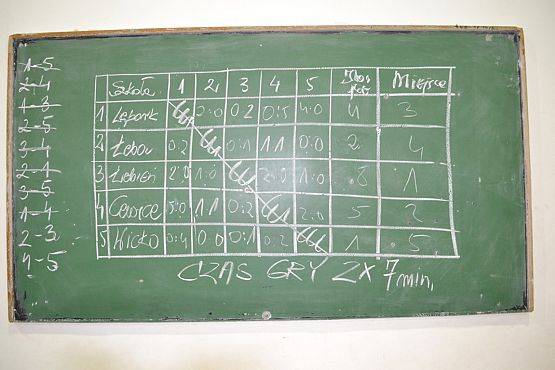 1-5
2-4
1-3
2-5
3-4
2-1
3-5
1-4
2-3
4-5
Szkoła 1 2 3 4 5 Miejsce
1 Lębork 0:2 0:5 4:0 4 3
2 Łeba 0:2 0:1 1 1 0:0 2 4
3 2:0 1:0 2:0 1:0 8 1
4 5:0 1 1 0:2 2:0 5 2
5 0:4 0 0 0:1 0:2 1 5
CZAS GRY 2X 7 min.